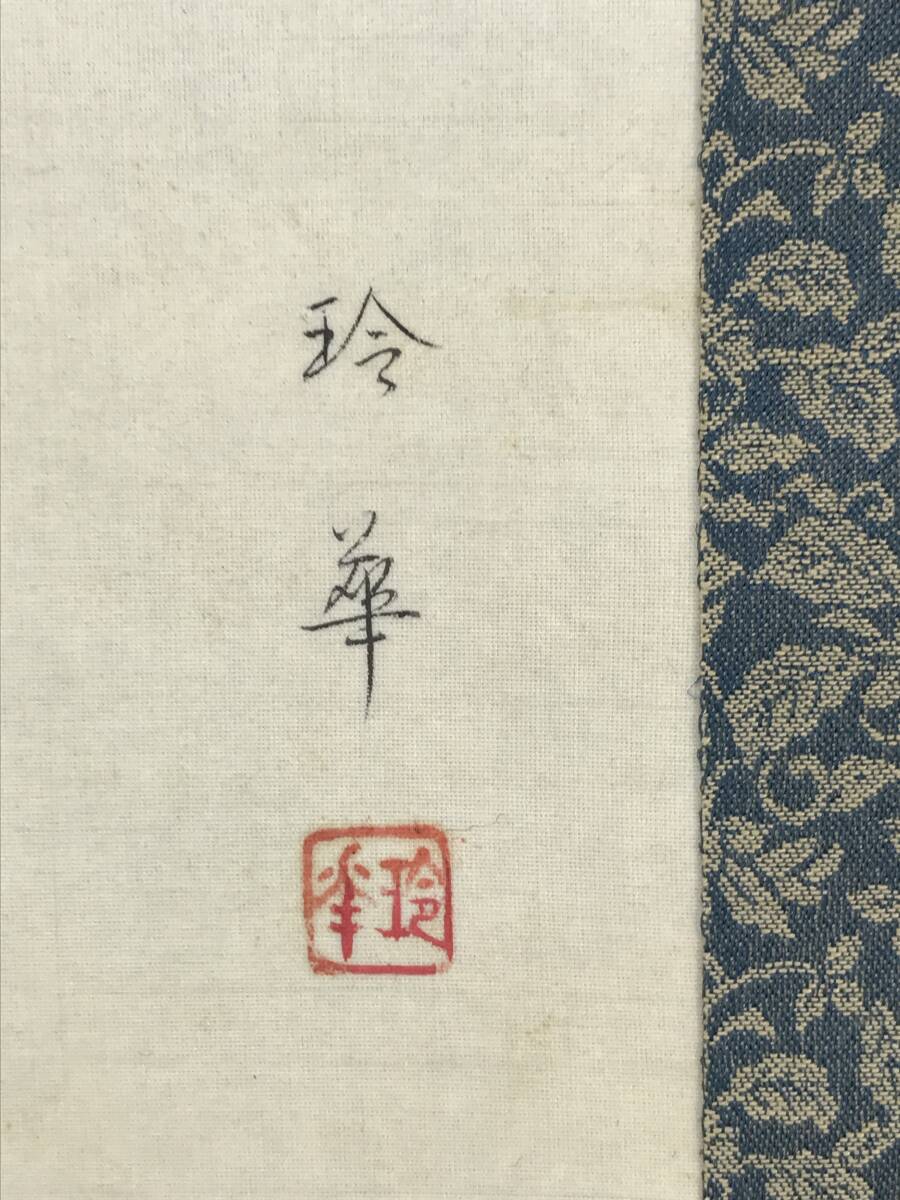 玲華
玲華